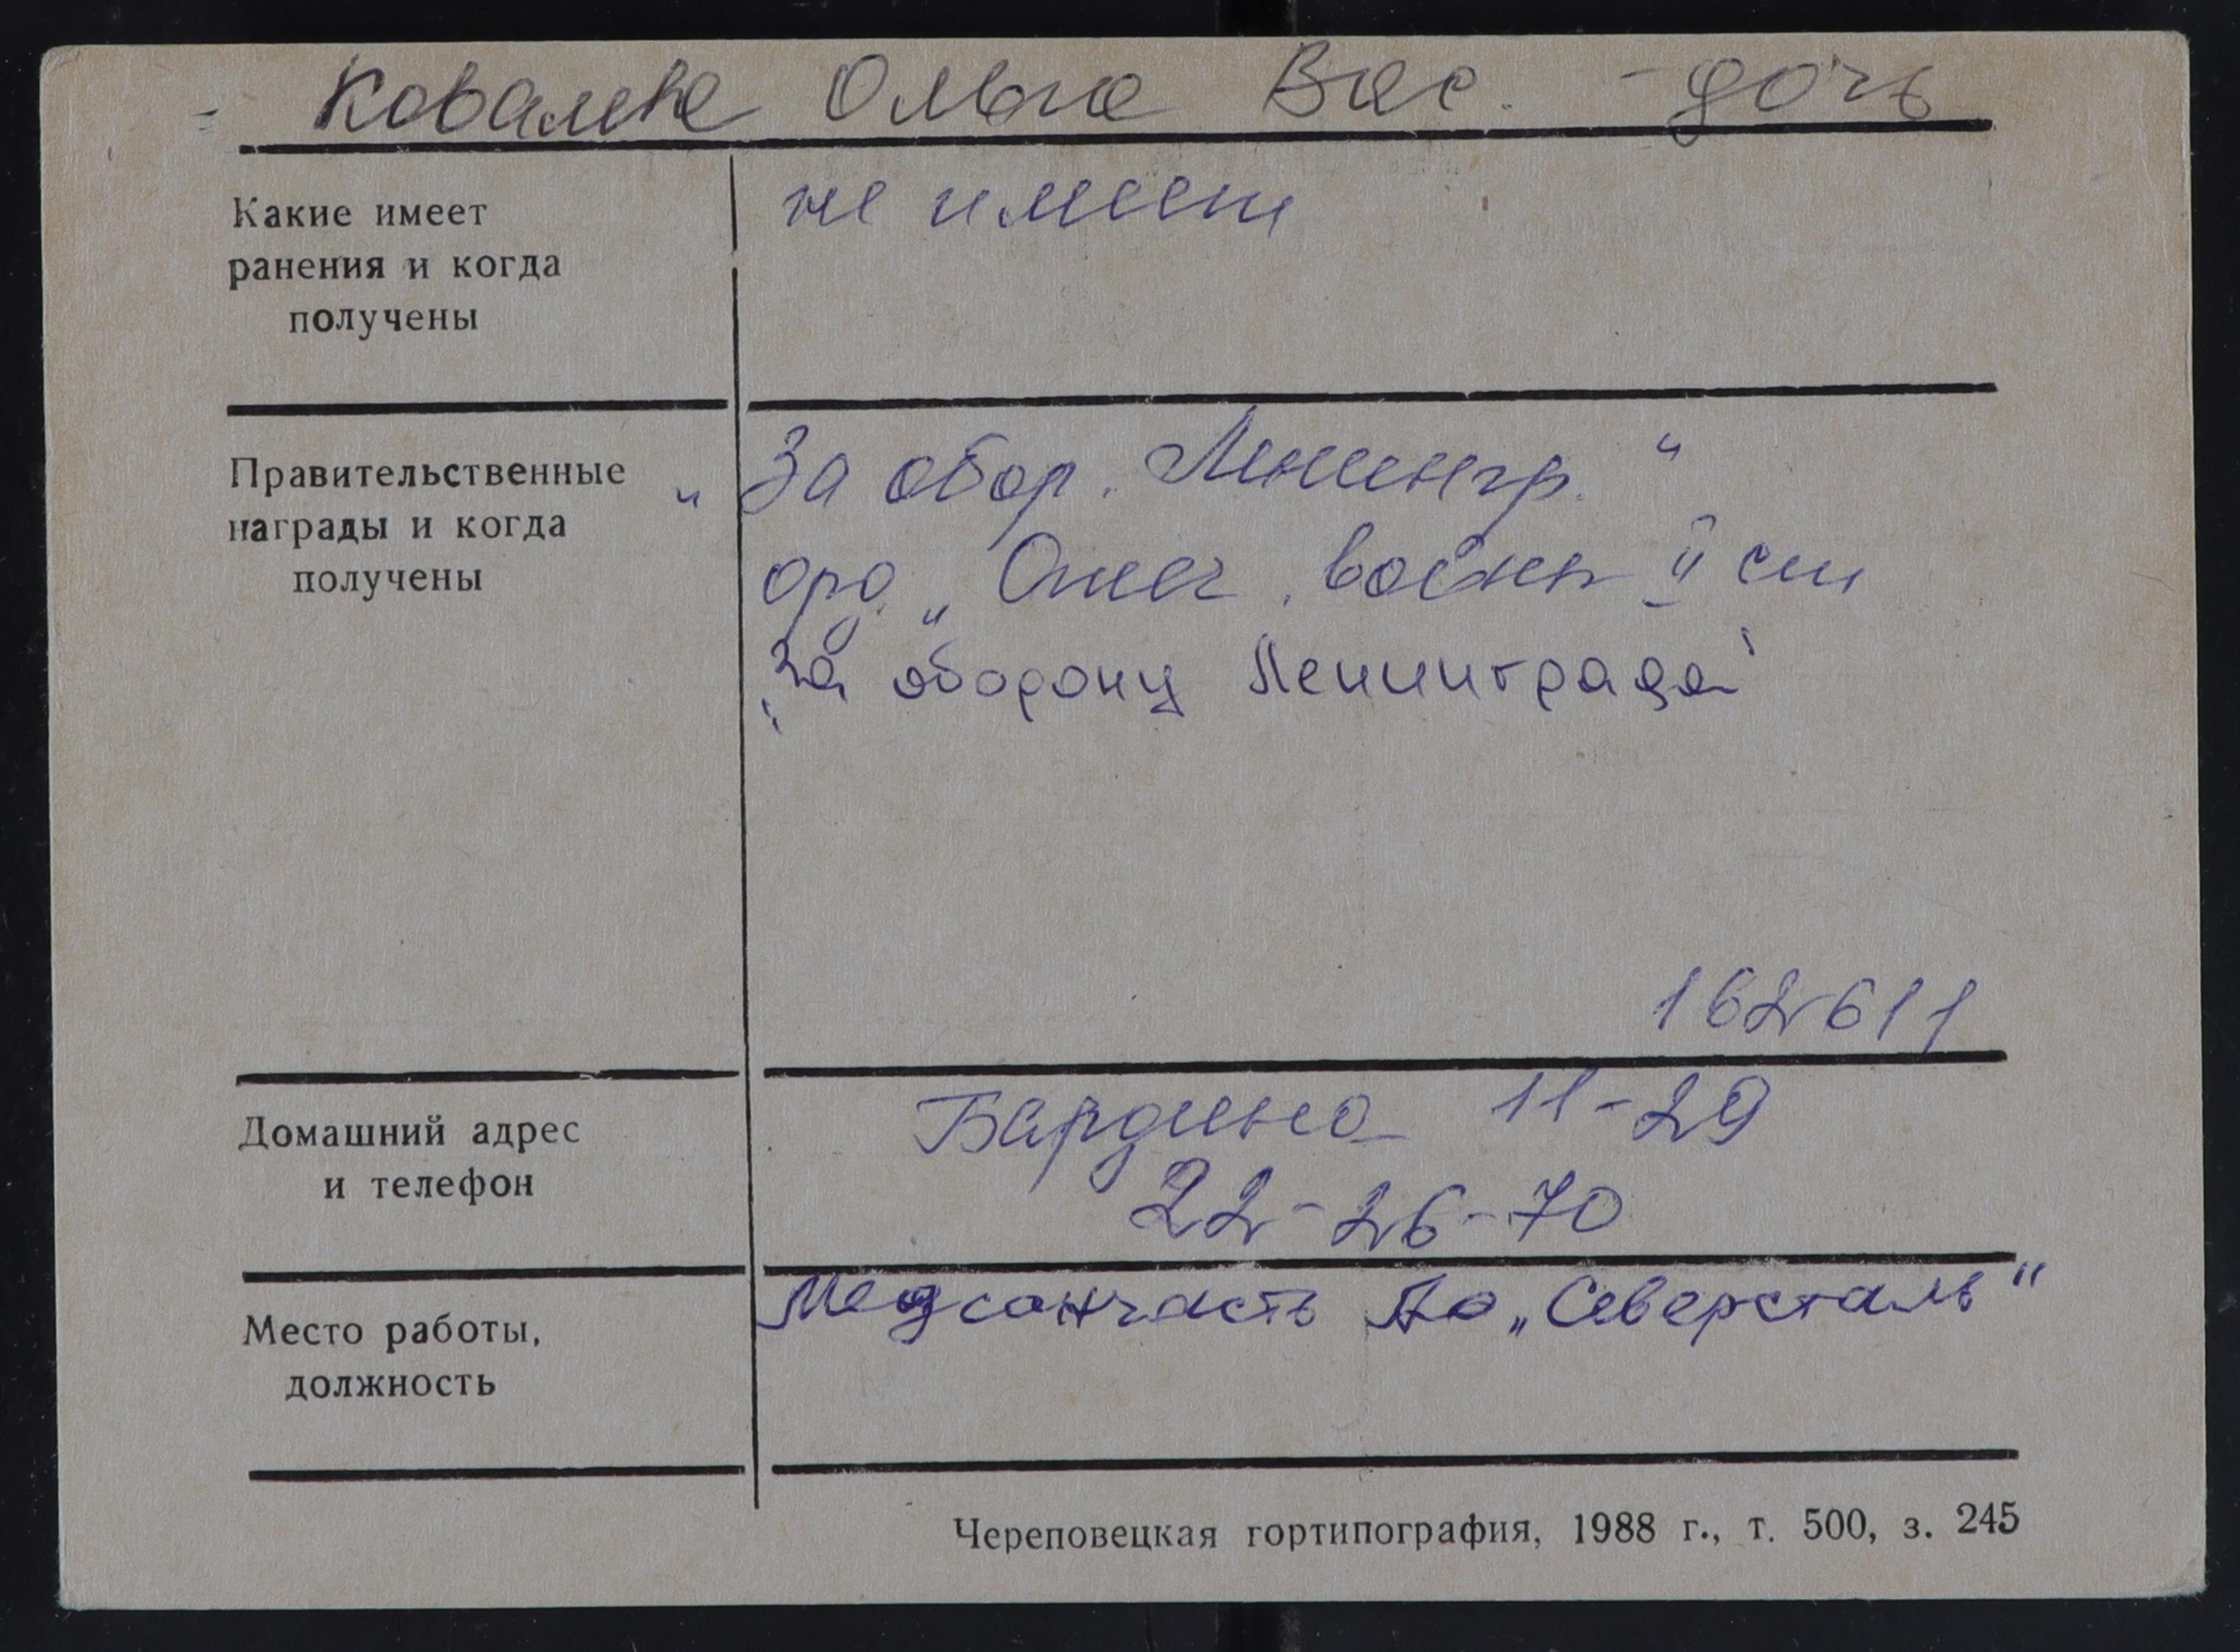 Ковалева Ольга Вас. - дочь
Какие имеет
ранения и когда
получены
не имеет
Правительственные
награды и когда
получены
„За обор. Ленингр."
орд. „Отеч. войны II ст
„За оборону Ленинграда"
162611
Домашний адрес
и телефон
Бардина 11-29
22-26-70
Место работы,
должность
Медсанчасть Ао „Северсталь"
Череповецкая гортипография, 1988 г., т. 500, з. 245